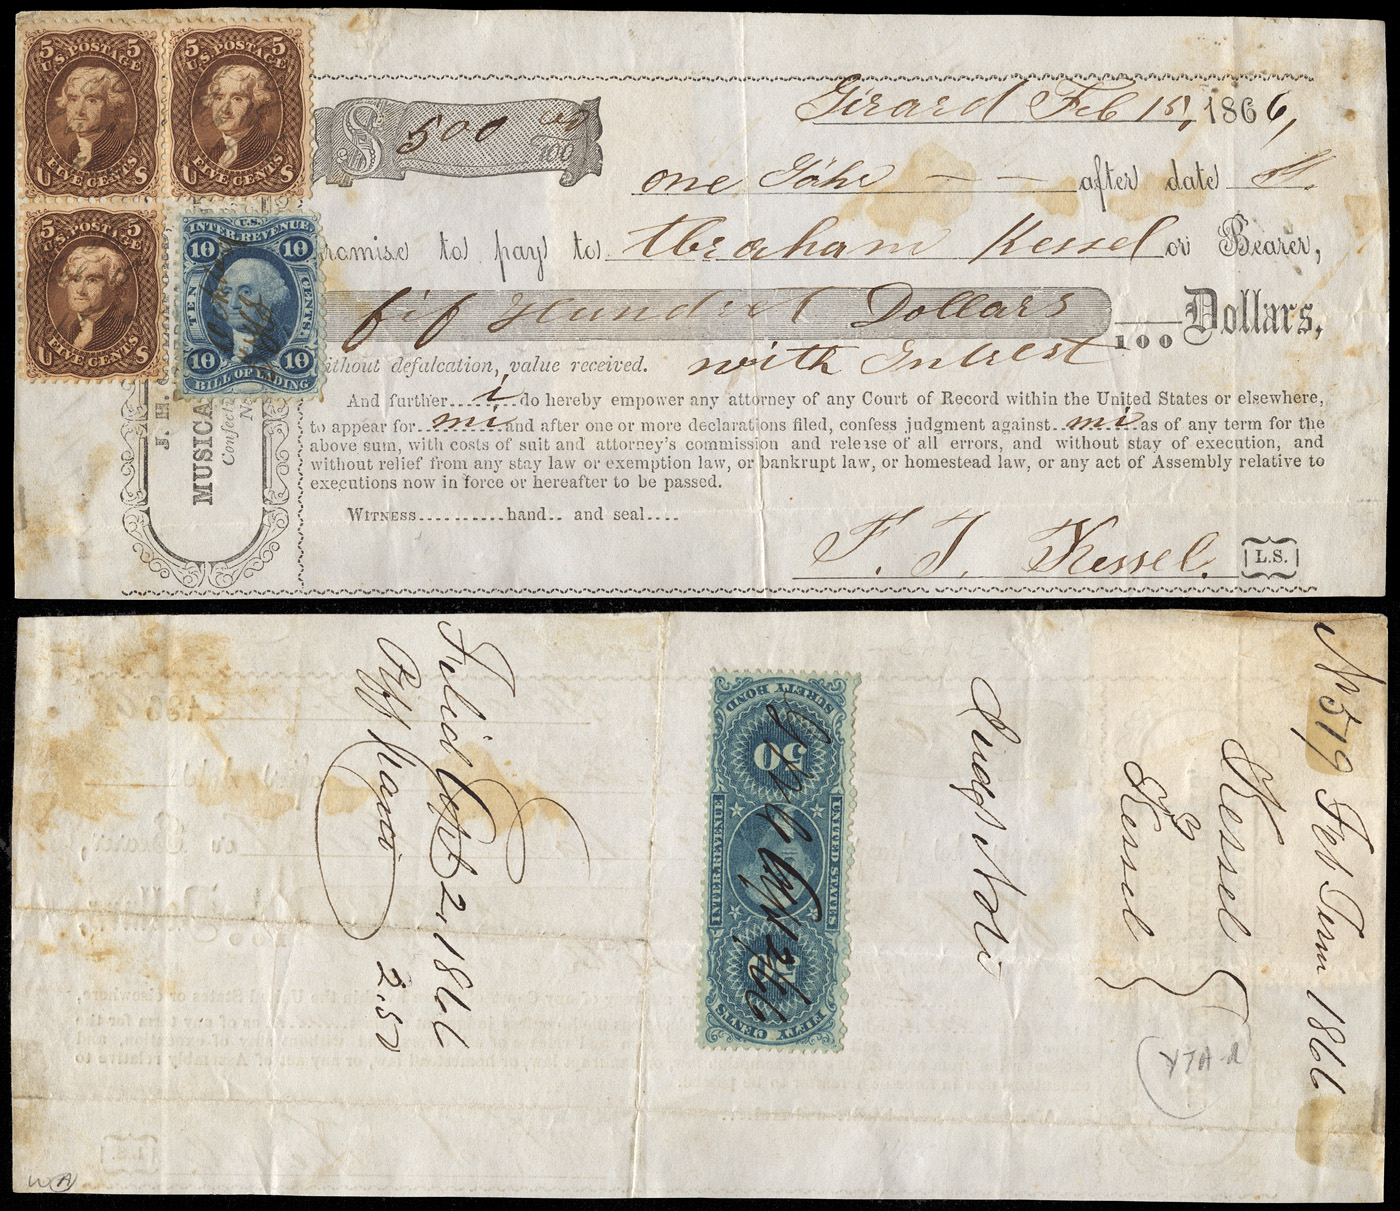 5 U.S. POSTAGE 5
U FIVE CENTS S
5 U.S. POSTAGE 5
U FIVE CENTS S
5 U.S. POSTAGE 5
U FIVE CENTS S
U.S.
INTER. REVENUE
10 10
TEN CENTS.
10 10
BILL OF LADING
J. H.
MUSICA
Confecti
N
$ 500 00/100
Girard Feb 15, 1866,
one Jahr — — after date
romise to pay to Abraham Kessel or Bearer,
fif Hundret Dollars /100 Dollars,
ithout defalcation, value received. with Intrest
And further i do hereby empower any attorney of any Court of Record within the United States or elsewhere,
to appear for mi and after one or more declarations filed, confess judgment against mi as of any term for the
above sum, with costs of suit and attorney's commission and release of all errors, and without stay of execution, and
without relief from any stay law or exemption law, or bankrupt law, or homestead law, or any act of Assembly relative to
executions now in force or hereafter to be passed.
WITNESS hand and seal
F. J. Kessel. L.S.
No 519 Feb Term 1866
Kessel
Kessel
Judgt Note
SURETY BOND
50
INTER. REVENUE
UNITED STATES
FIFTY CENTS
Filed Sept 2, 1866
2.50